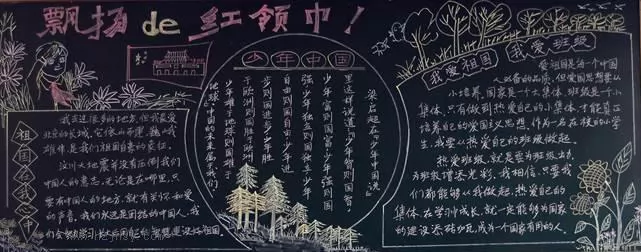 飘扬de红领巾！
少年中国
梁启超在《少年中国说》
里这样说道："少年智则国智
少年富则国富少年强则国
强少年独立则国独立少年
自由则国自由少年进
步则国进步少年胜
于欧洲则国胜于欧洲
少年雄于地球则国雄于
地球"中国的未来属于我们
祖国在我心中
我去过很多的地方，但我最爱
祖国的长城，它像
是我们祖国自豪的象征。
汶川大地震并没有压倒我们
中国人的意志，无论是在哪里，只
要有中国人的地方，就有关怀和爱
的声音。我们永远是团结的中国人，我
们
建设好祖国。
我爱祖国
我爱班级
爱祖国是每一个中国
人必备的品质，但爱国思想要从
小培养，国家是个大集体，班级是一个小
集体，只有做到热爱自己的小集体，才能真正
培养自己的爱国主义思想，作为一名在校的小学
生，我要从热爱自己的班级做起。
热爱班级，就是要为班级出力，
为班级增添光彩。我相信，只要我
们都能够从我做起，热爱自己的
集体，在学习中成长，就一定能够为国家
的建设添砖加瓦，成为一个国家有用的人。